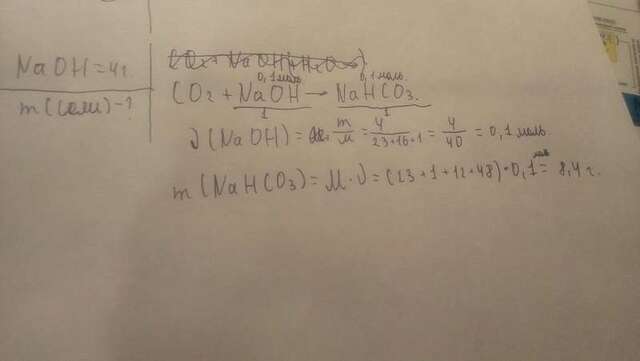 NaOH = 4г.
m(соли) - ?
CO2 + NaOH + H2O
0,1 моль 0,1 моль.
CO2 + NaOH → NaHCO3.
1 1
ν(NaOH) = m/M = 4/23+16+1 = 4/40 = 0,1 моль
m(NaHCO3) = M·ν = (23+1+12+48)·0,1 моль = 8,4 г.